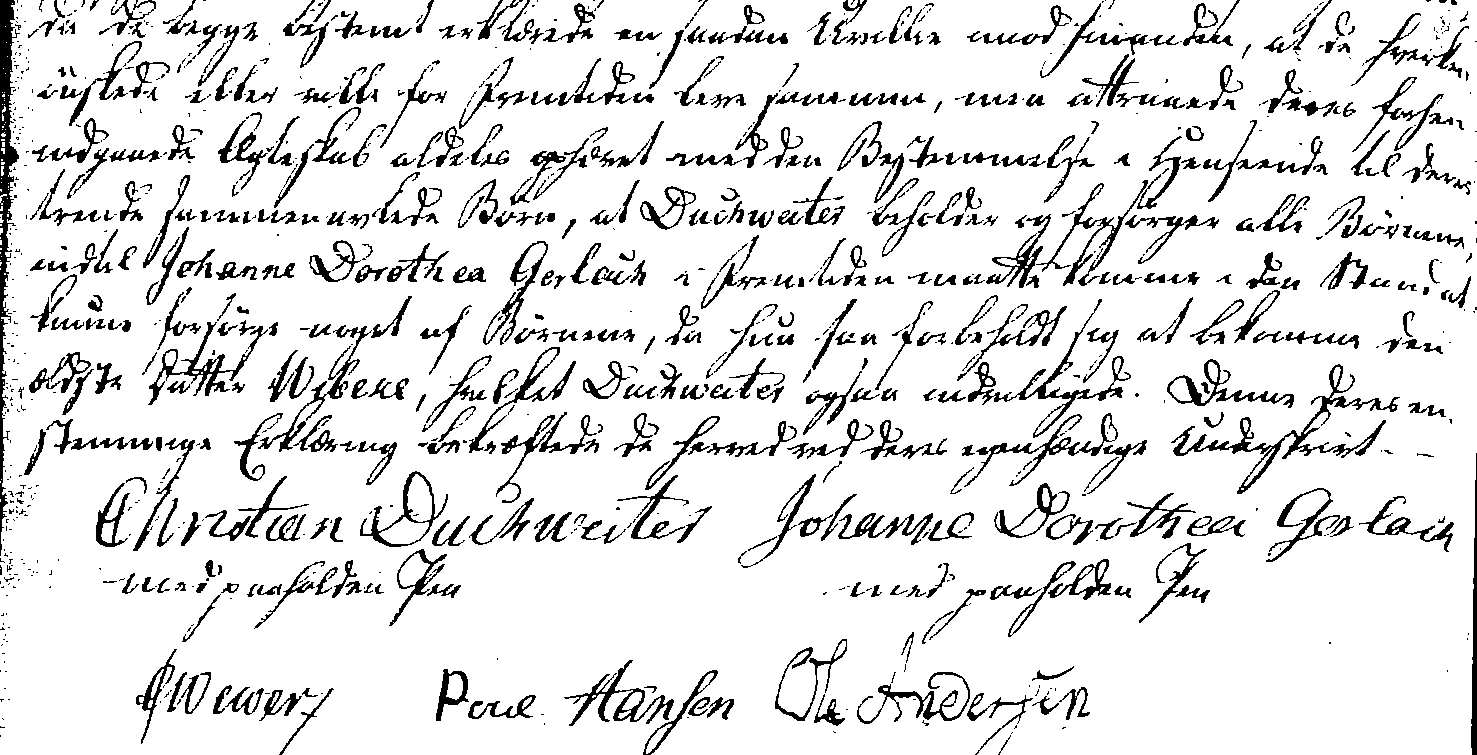 da de begge bestemt erklærede en saadan Uvillie mod hinanden, at de hverken
ønskede eller ville for Fremtiden leve sammen, men attraaede deres forhen
indgaaede Ægteskab aldeles ophævet med den Bestemmelse i Henseende til deres
trende sammenavlede Børn, at Duckweiter beholder og forsørger alle Børnene,
indtil Johanne Dorothea Gerlach i Fremtiden maatte komme i den Stand at
kunne forsørge noget af Børnene, da hun saa forbeholdt sig at bekomme den
ældste Datter Wibeke, hvilket Duckweiter ogsaa indvilligede. Denne deres en-
stemmige Erklæring bekræftede de herved ved deres egenhændige Underskrivt
Christian Duckweiter Johanne Dorothea Gerlach
med paaholden Pen med paaholden Pen
Wewer Poul Hansen Ole Andersen